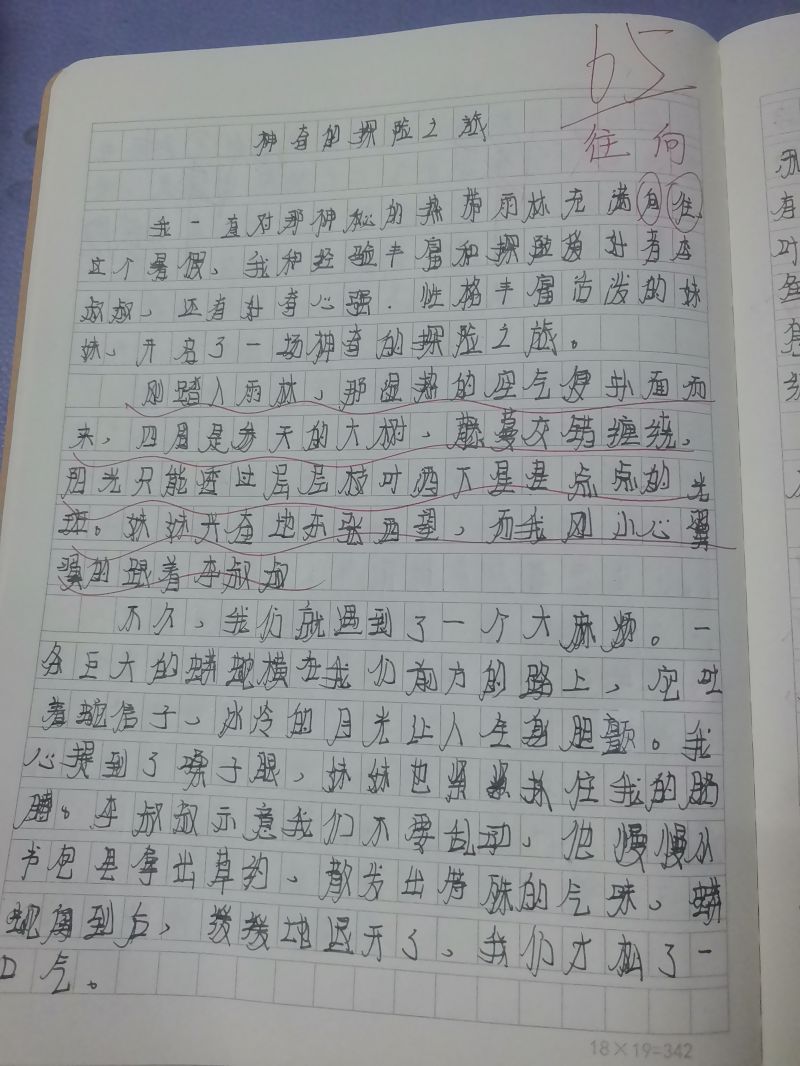 65
往向
神奇的探险之旅
我一直对那神秘的热带雨林充满向往
这个暑假，我和经验丰富和探险爱好者李
叔叔，还有好奇心强．性格丰富活泼的妹
妹，开启了一场神奇的探险之旅。
刚踏入雨林，那湿热的空气便扑面而
来，四周是参天的大树，藤蔓交错缠绕，
阳光只能透过层层枝叶洒下星星点点的光
斑。妹妹兴奋地东张西望，而我则小心翼
翼的跟着李叔叔
不久，我们就遇到了一个大麻烦。一
条巨大的蟒蛇横在我们前方的路上，它吐
着蛇信子，冰冷的目光让人生身胆颤。我
心提到了嗓子眼，妹妹也紧紧抓住我的胳
膊。李叔叔示意我们不要乱动，他慢慢从
书包里拿出草药，散发出特殊的气味，蟒
蛇闻到后，缓缓地退开了，我们才松了一
口气。
18×19=342